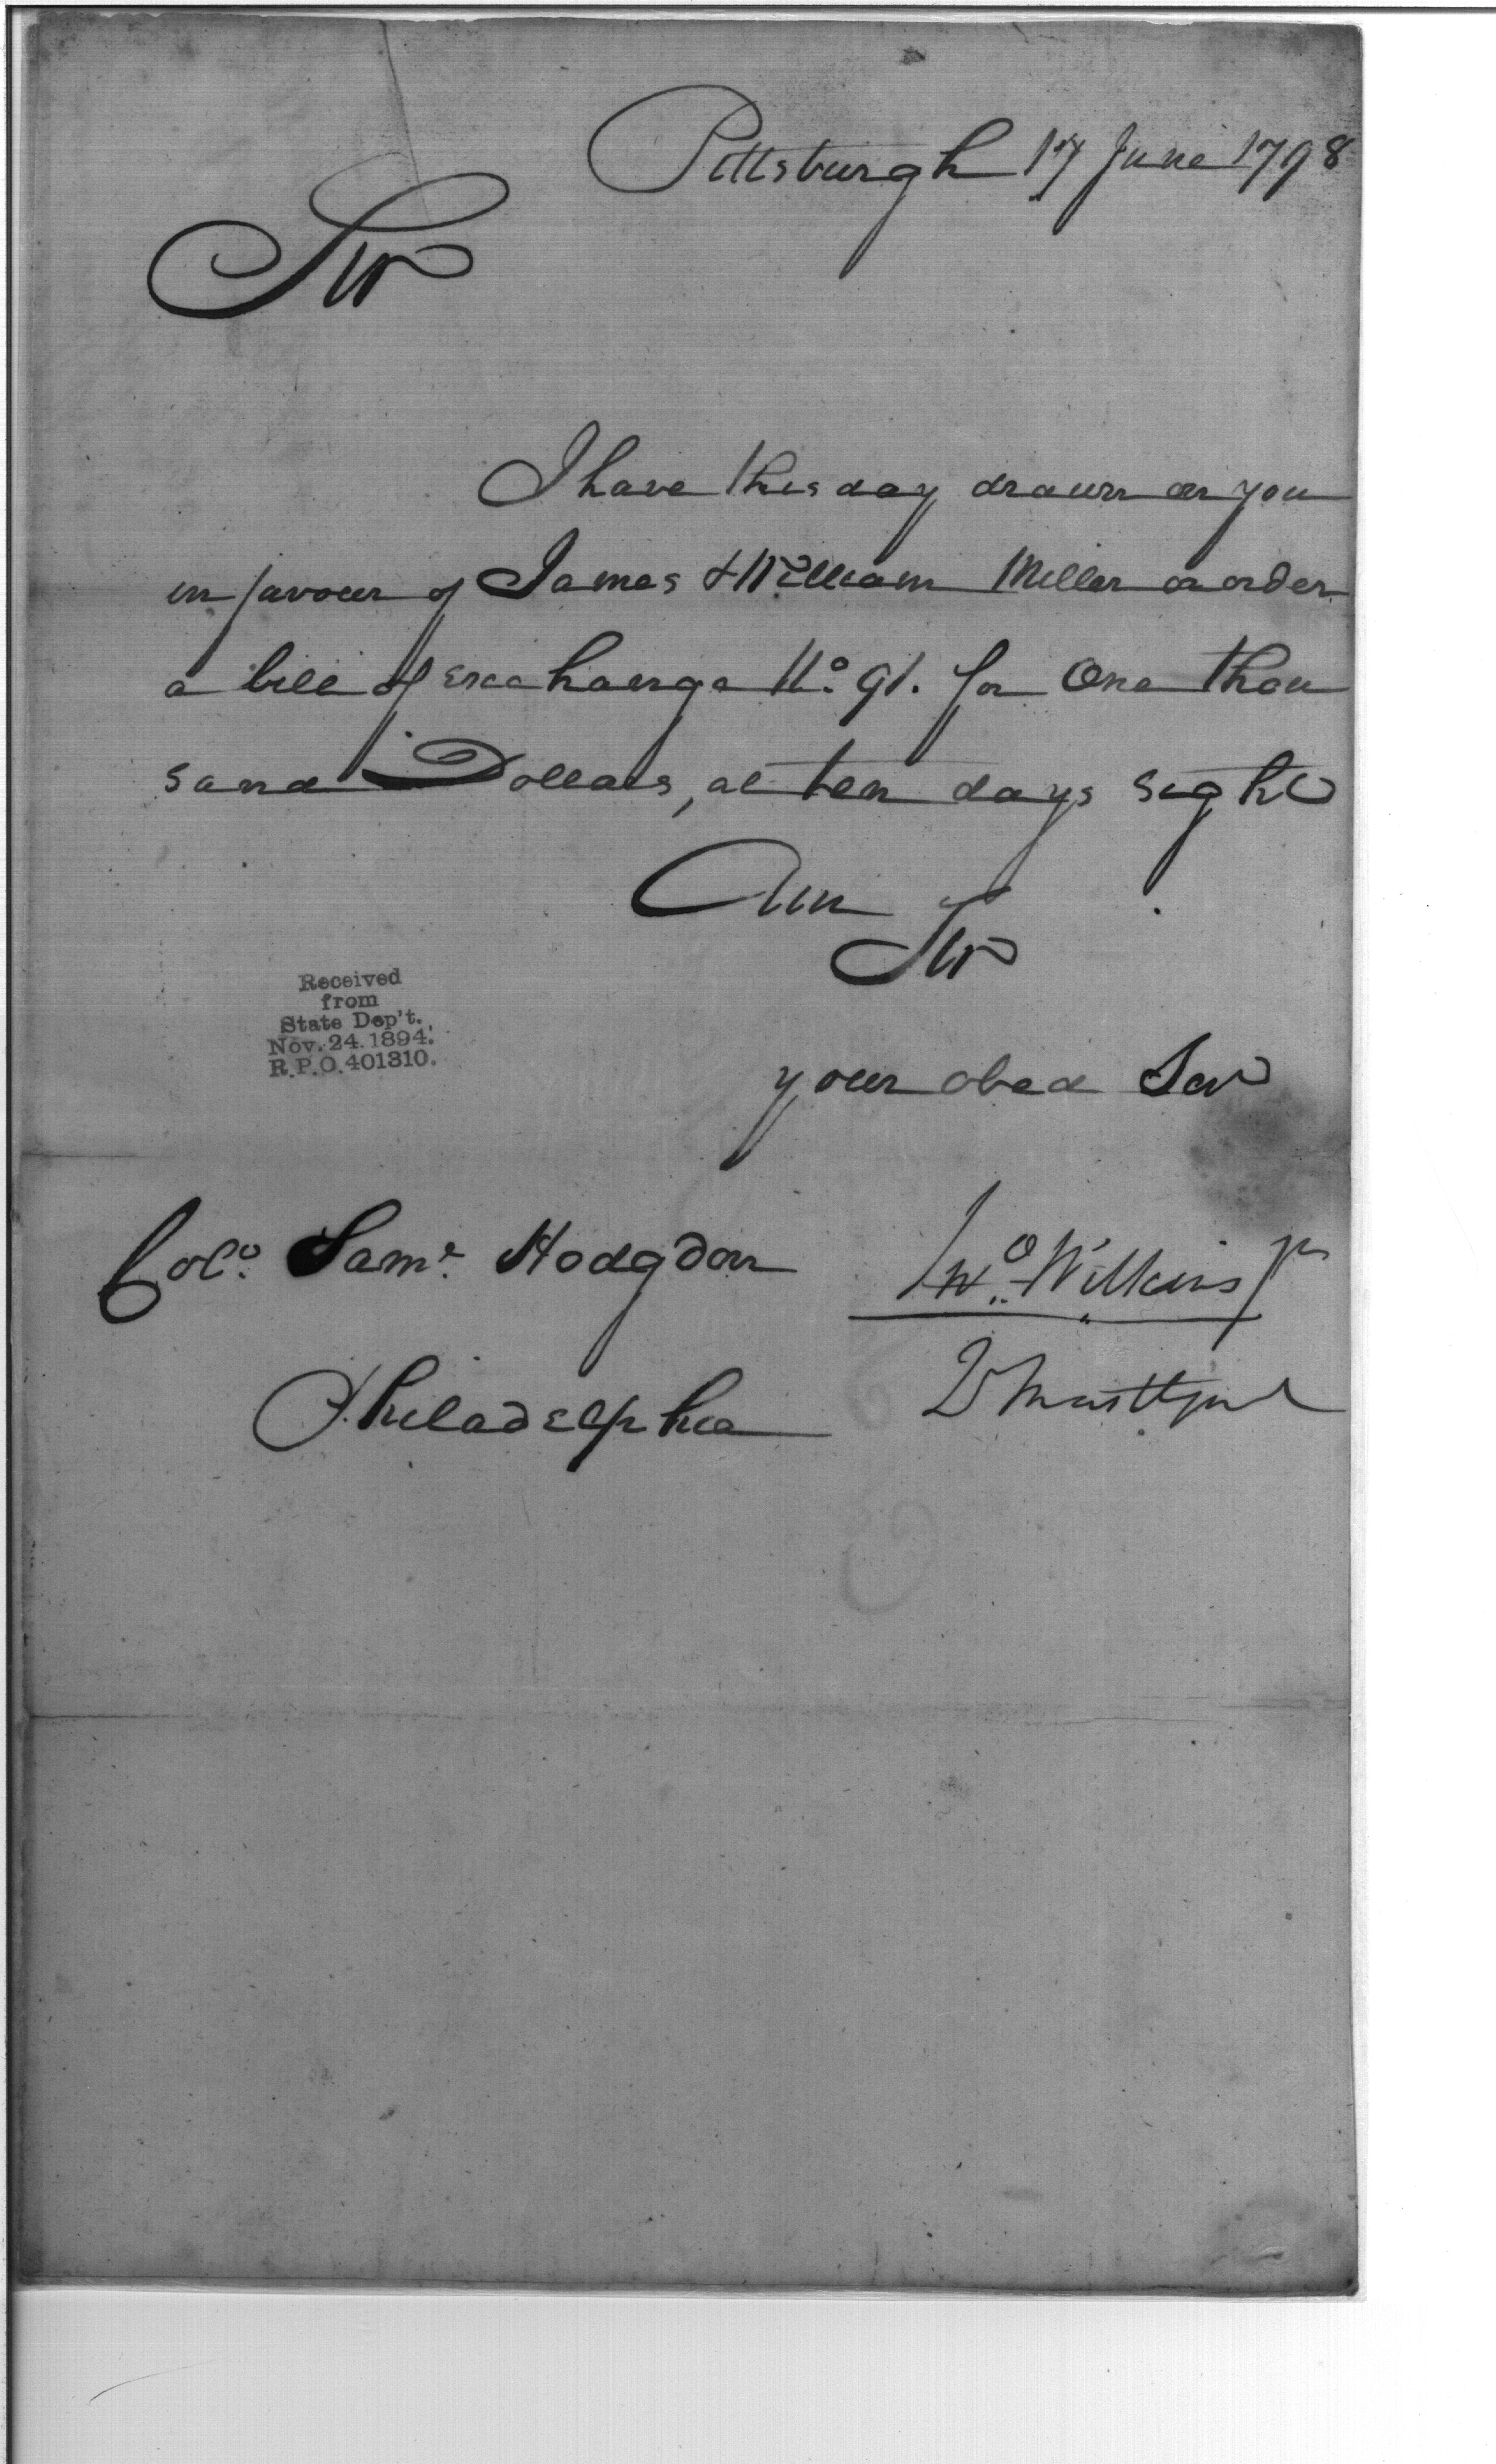 Pittsburgh 17 June 1798
Sir
I have this day drawn on you
in favour of James & William Miller or order
a bill of exchange No. 91. for One thou
sand Dollars, at ten days sight
Am
Sir
your obed Ser
Received
from
State Dep't.
Nov. 24. 1894.
R.P.O. 401310.
Colo. Saml. Hodgdon
Jno. Wilkins Jr
Philadelphia